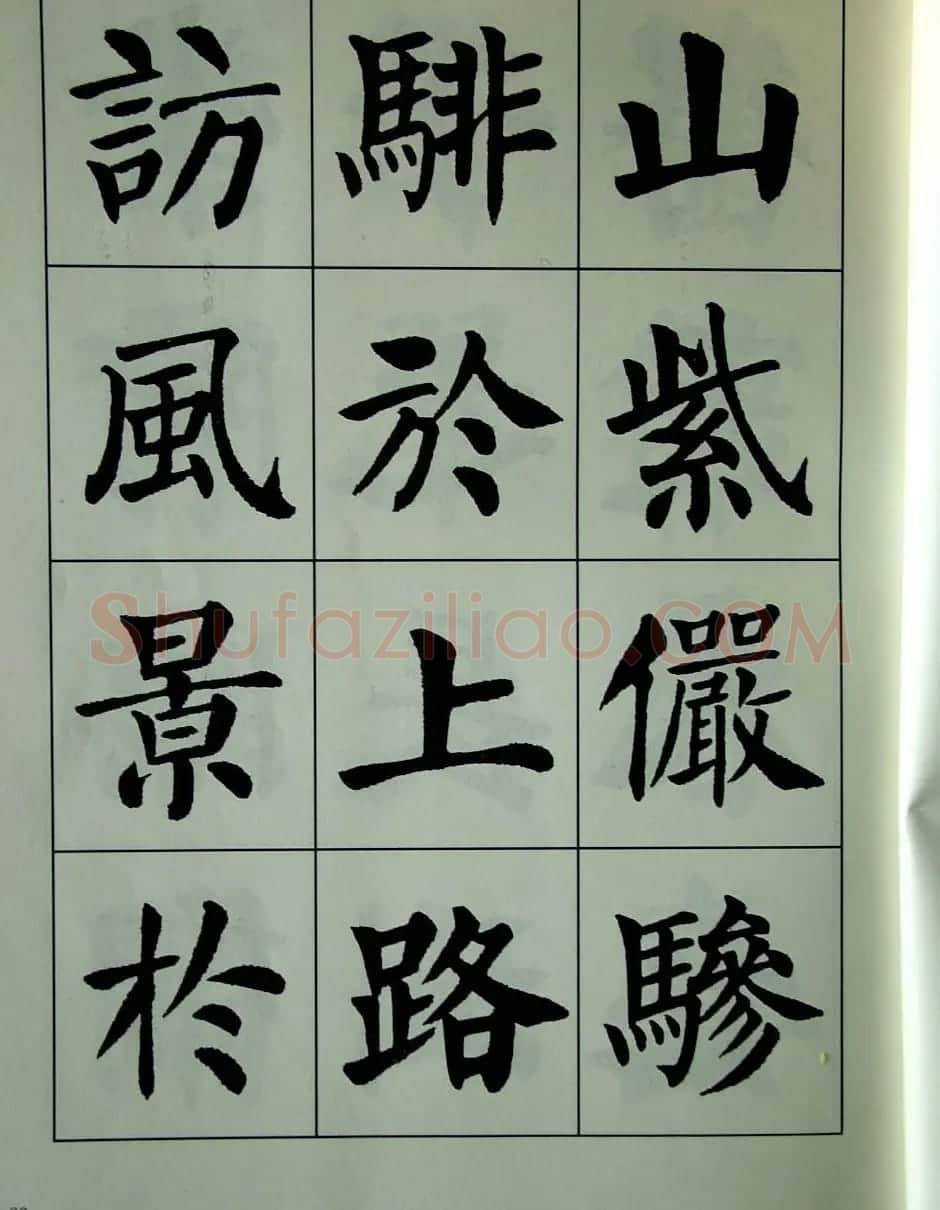 山紫儼驂
騑於上路
訪風景於
Shufaziliao.COM